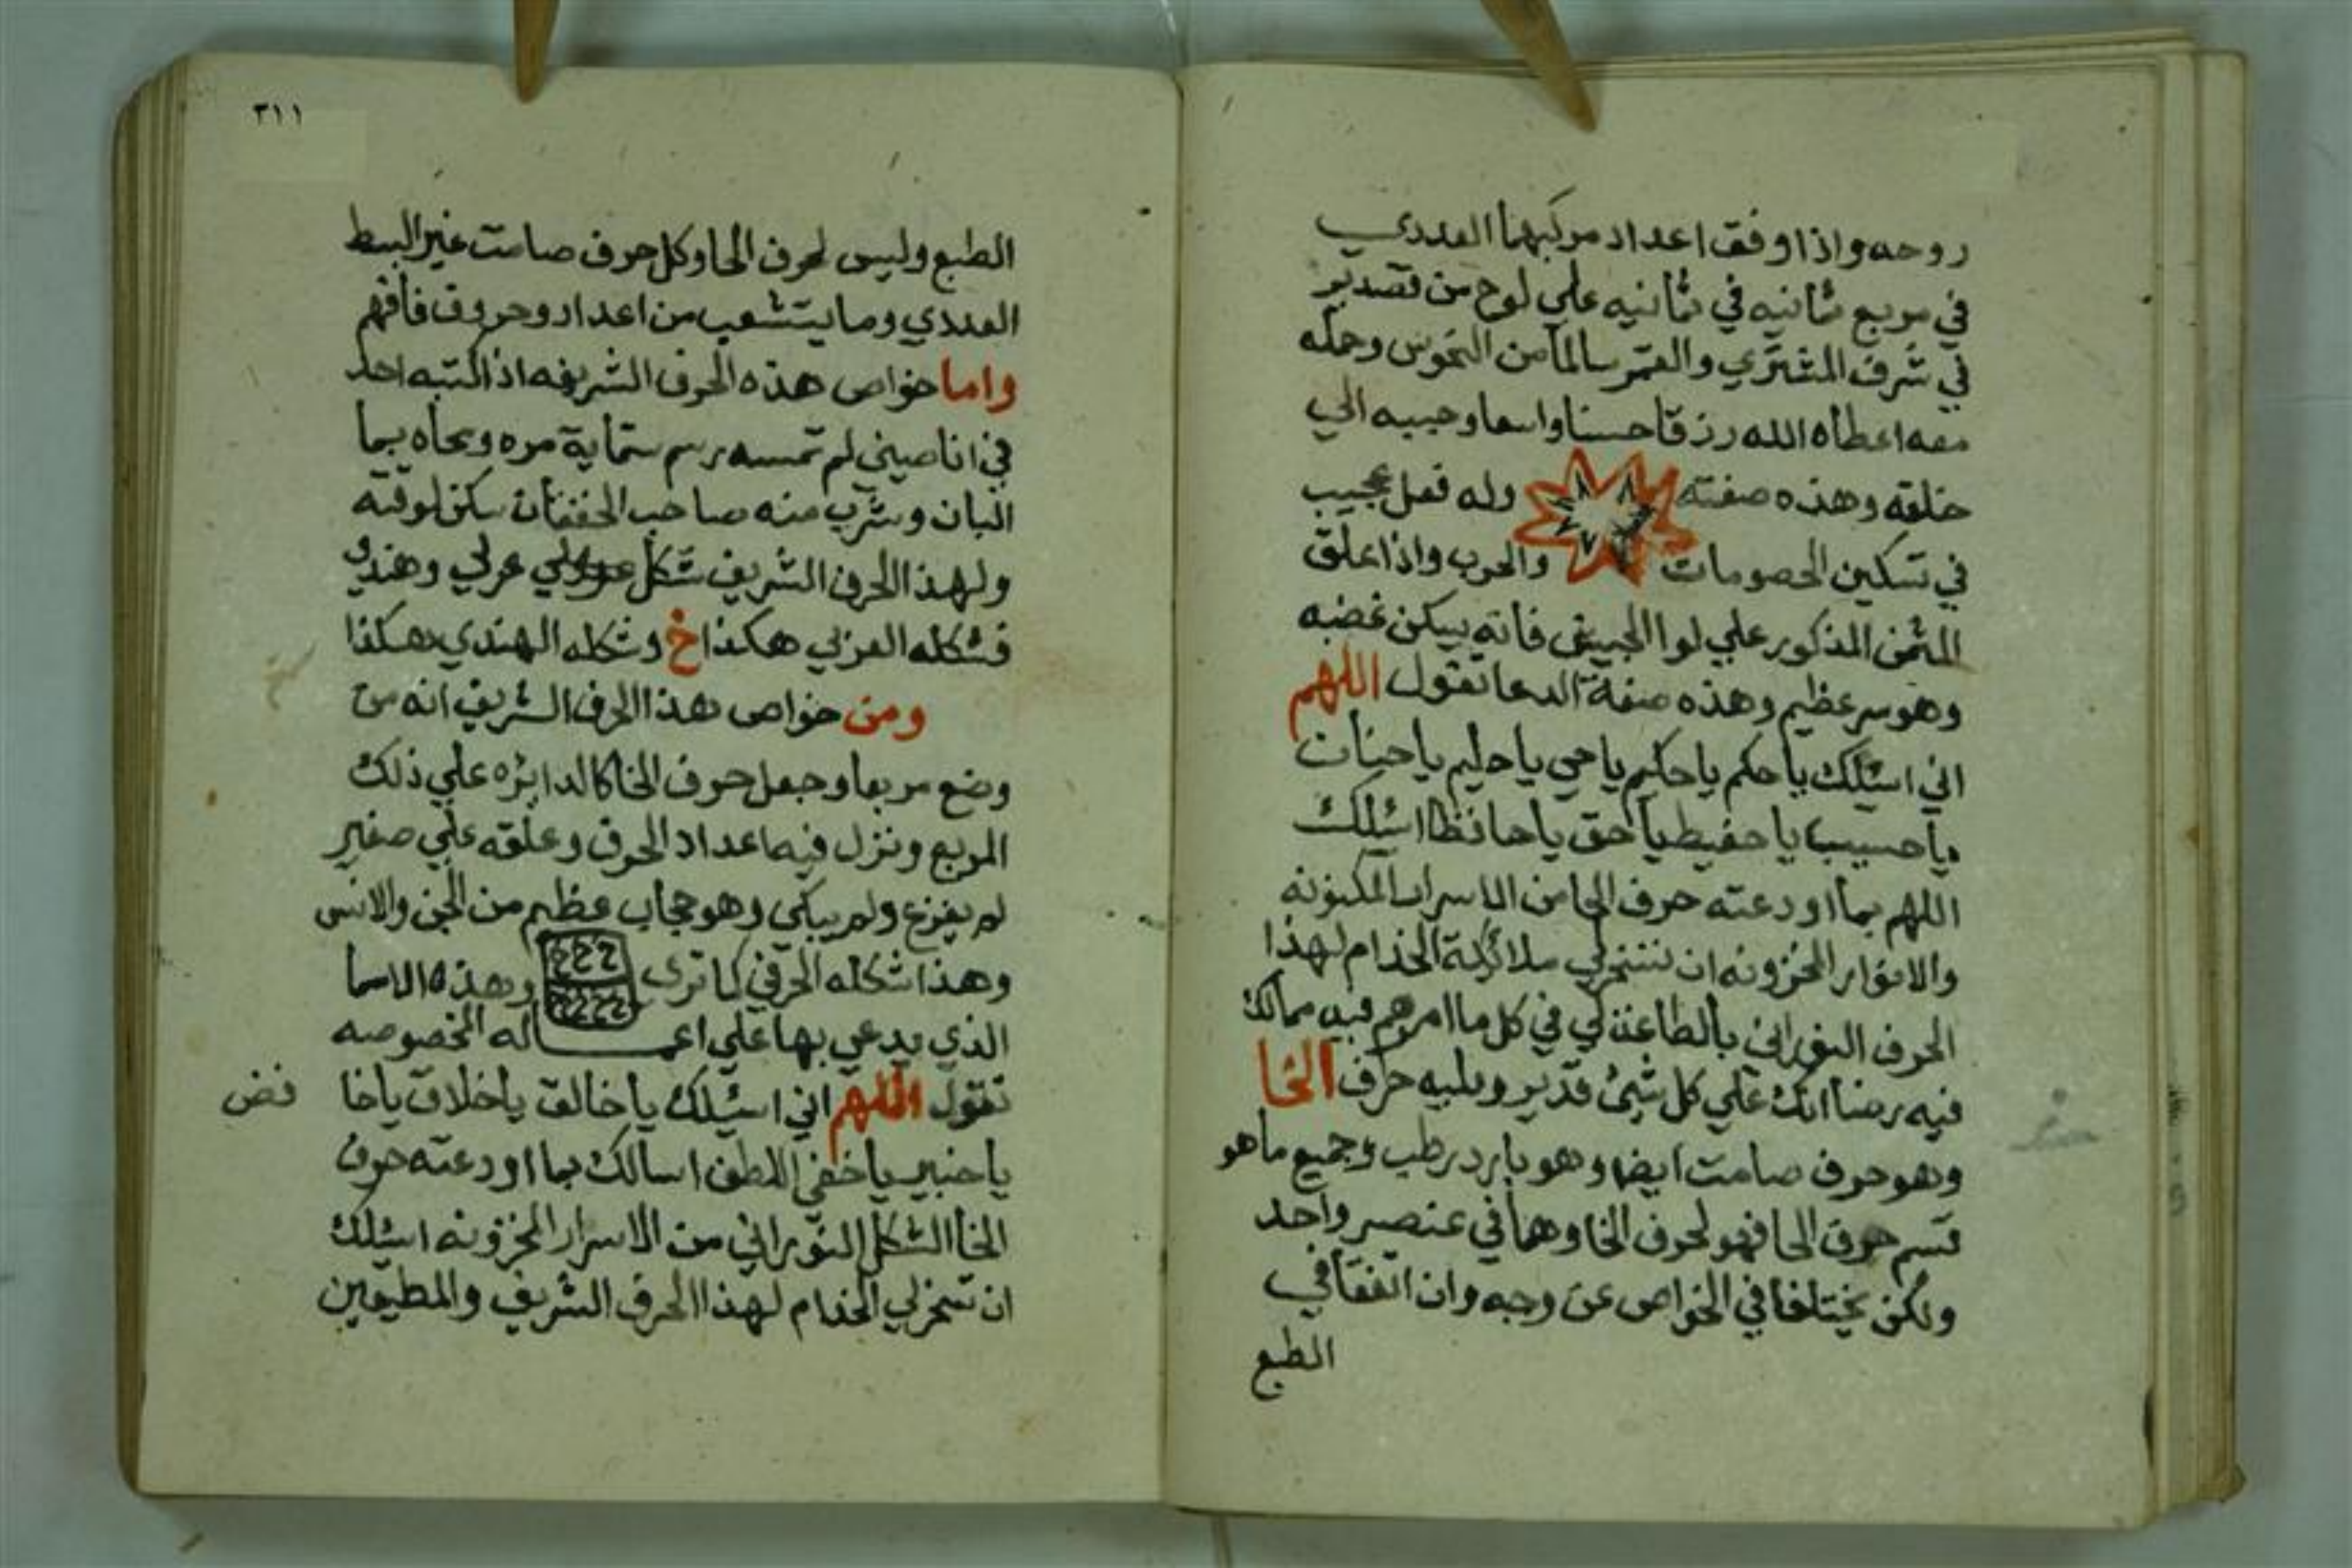 روحه واذا وفق اعداد مركبهما العددي
في مربع ثمانيه في ثمانيه علي لوح من قصدير
في شرف المشتري والقمر سالما من النحوس وحمله
معه اعطاه الله رزقا حسنا واسعا وحببه الي
خلقه وهذه صفته وله فعل عجيب
في تسكين الخصومات والحرب واذا علق
المثمن المذكور علي لوا الجيش فانه يسكن غضبه
وهو سر عظيم وهذه صفة الدعا تقول اللهم
اني اسئلك يا حكم يا حكيم يا حي يا حليم يا حنان
يا حسيب يا حفيظ يا حق يا حافظ اسئلك
اللهم بما اودعته حرف الحا من الاسرار المكنونه
والانوار المخزونه ان تسخر لي ملائكة الخدام لهذا
الحرف النوراني بالطاعة لي في كل ما امرهم فيه مما لك
فيه رضا انك علي كل شيئ قدير ويليه حرف الخا
وهو حرف صامت ايضا وهو بارد رطب وجميع ما هو
قسم حرف الحا فهو لحرف الخا وهما في عنصر واحد
ولكن يختلفا في الخواص عن وجه وان اتفقا في
الطبع
٣١١
الطبع وليس لحرف الخا وكل حرف صامت غير البسط
العددي وما يتشعب من اعداد وحروف فافهم
واما خواص هذه الحرف الشريفه اذا كتبه احد
في انا صيني لم تمسه برسم ستماية مره ومحاه بما
البان وشرب منه صاحب الخفقان سكن لوقته
ولهذا الحرف الشريف شكل عربي وهندي
فشكله العربي هكذا خ وشكله الهندي هكذا
ومن خواص هذا الحرف الشريف انه من
وضع مربعا وجعل حرف الخا كالدايره علي ذلك
المربع ونزل فيه اعداد الحرف وعلقه علي صغير
لم يفزع ولم يبكي وهو حجاب عظيم من الجن والانس
وهذا شكله الحرفي كما تري وهذه الاسما
الذي يدعي بها علي اعماله المخصوصه
تقول اللهم اني اسئلك يا خالق يا خلاق يا خا فض
يا خبير يا خفي اللطف اسالك بما اودعته حرف
الخا الشكل النوراني من الاسرار المخزونه اسئلك
ان تسخر لي الخدام لهذا الحرف الشريف والمطيعين